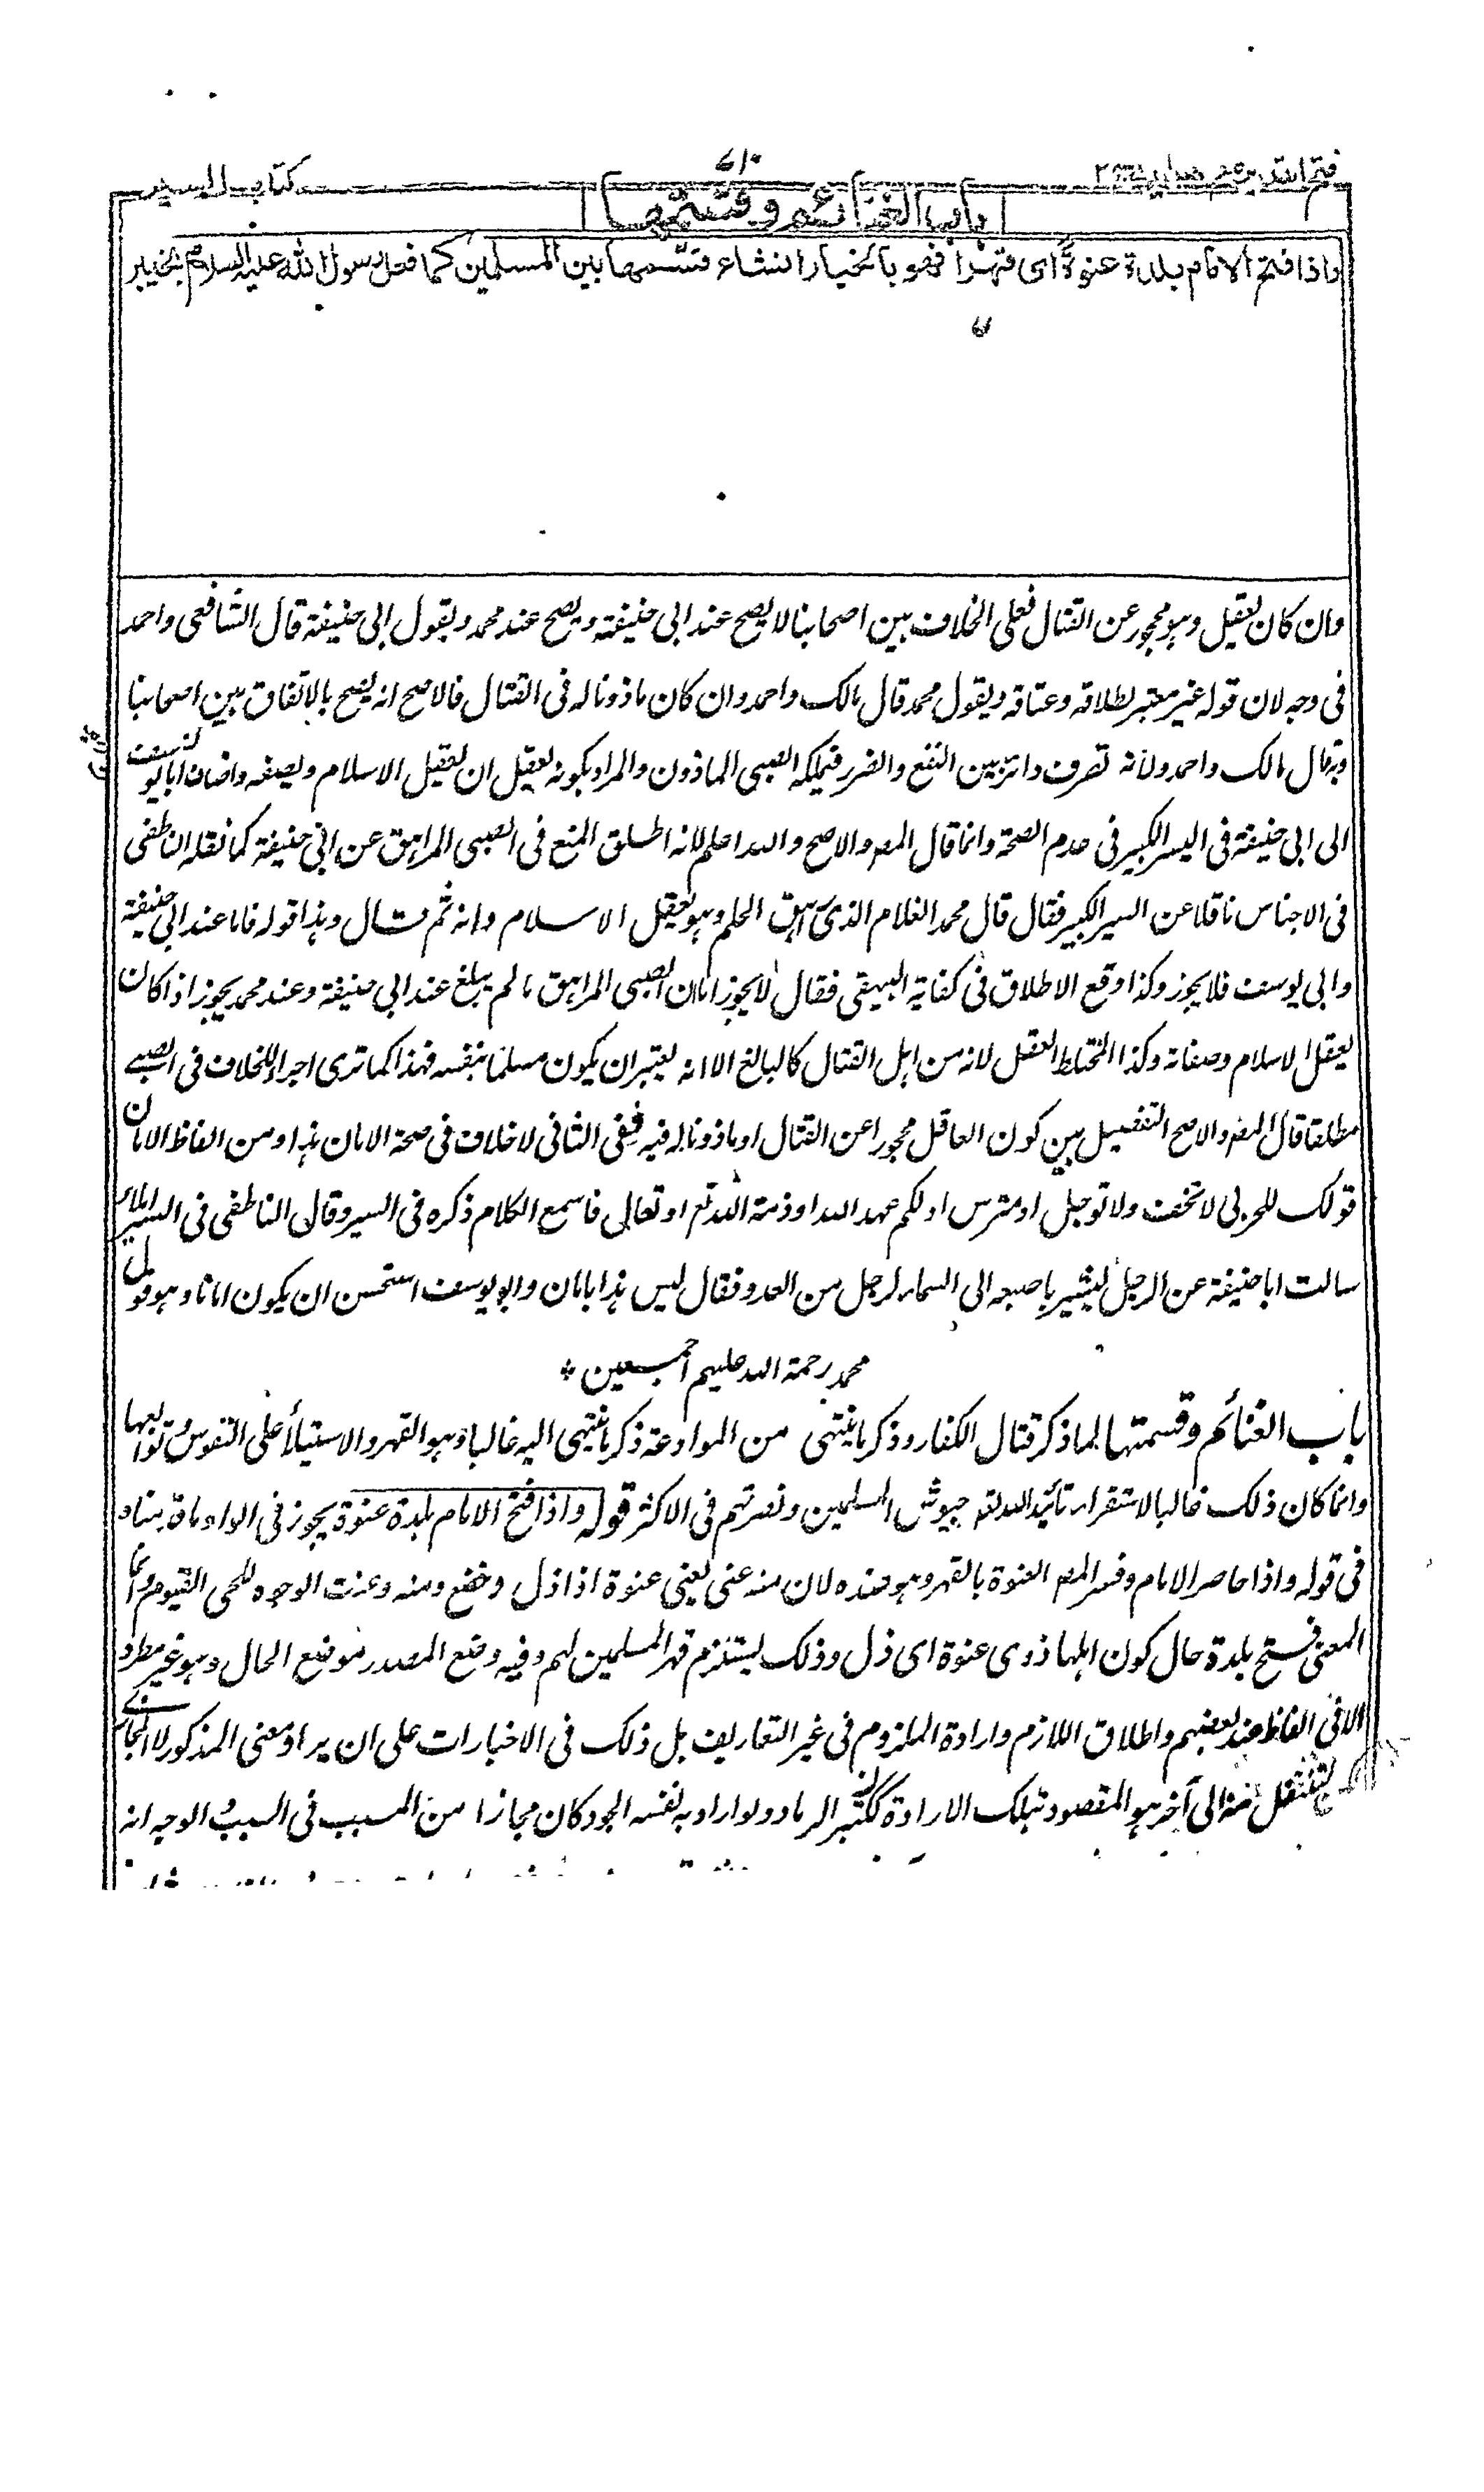 فتح القدير مع هداية ج ٢
٧١٠
كتاب السير
باب الغنائم وقسمتها
واذا فتح الامام بلدة عنوة اى قهرا فهو بالخيار ان شاء قسمها بين المسلمين كما فعل رسول الله عليه السلام بخيبر
وان كان يعقل وهو محجور عن القتال فعلى الخلاف بين اصحابنا لا يصح عند ابى حنيفة ويصح عند محمد وبقول ابى حنيفة قال الشافعى واحمد
فى وجه لان قوله غير معتبر لطلاقه وعتاقه وبقول محمد قال مالك واحمد وان كان ماذونا له فى القتال فالاصح انه يصح بالاتفاق بين اصحابنا
وبه قال مالك واحمد ولانه تصرف دائر بين النفع والضرر فيملكه الصبى الماذون والمراد بكونه يعقل ان يعقل الاسلام ويصفه واضاف ابا يوسف
الى ابى حنيفة فى السير الكبير فى عدم الصحة وانما قال المصـ والاصح والله اعلم لانه اطلق المنع فى الصبى المراهق عن ابى حنيفة كما نقله الناطفى
فى الاجناس ناقلا عن السير الكبير فقال قال محمد الغلام الذى راهق الحلم وهو يعقل الاسلام وانه ثم قال وهذا قوله فاما عند ابى حنيفة
وابى يوسف فلا يجوز وكذا وقع الاطلاق فى كفاية البيهقى فقال لا يجوز امان الصبى المراهق مالم يبلغ عند ابى حنيفة وعند محمد يجوز اذا كان
يعقل الاسلام وصفاته وكذا المختلط العقل لانه من اهل القتال كالبالغ الا انه يعتبر ان يكون مسلما بنفسه فهذا كما ترى اجراء للخلاف فى الصبى
مطلقا قال المصـ والاصح التفصيل بين كون العاقل محجورا عن القتال او ماذونا له فيه ففى الثانى لا خلاف فى صحة الامان هذا ومن الفاظ الامان
قولك للحربى لا تخف ولا توجل او مترس او لكم عهد الله او ذمة الله تع او تعالى فاسمع الكلام ذكره فى السير وقال الناطفى فى السير املاء
سالت ابا حنيفة عن الرجل يشير باصبعه الى السماء لرجل من العدو فقال ليس هذا بامان وابو يوسف استحسن ان يكون امانا وهو قول
محمد رحمة الله عليهم اجمعين *
باب الغنائم وقسمتها لما ذكر قتال الكفار وذكر ما ينتهى من الموادعة ذكر ما ينتهى اليه غالبا وهو القهر والاستيلاء على النفوس وتوابعها
وانما كان ذلك غالبا لاستقرار تائيد الله تعـ جيوش المسلمين ونصرتهم فى الاكثر قوله واذا فتح الامام بلدة عنوة يجوز فى الواو ما قدمناه
فى قوله واذا حاصر الامام وفسر المصـ العنوة بالقهر وهو ضده لان منه عنى يعنى عنوة اذا ذل وخضع ومنه وعنت الوجوه للحى القيوم وانما
المعنى فتح بلدة حال كون اهلها ذوى عنوة اى ذل وذلك يستلزم قهر المسلمين لهم وفيه وضع المصدر موضع الحال وهو غير مطرد
الا فى الفاظ عند بعضهم واطلاق اللازم وارادة الملزوم فى غير التعاريف بل ذلك فى الاخبارات على ان يراد معنى المذكور لا المجازى
لينتقل منه الى آخر هو المقصود بتلك الارادة ككثير الرماد ولو اراد به نفسه الجود كان مجازا من المسبب فى السبب والوجه انه